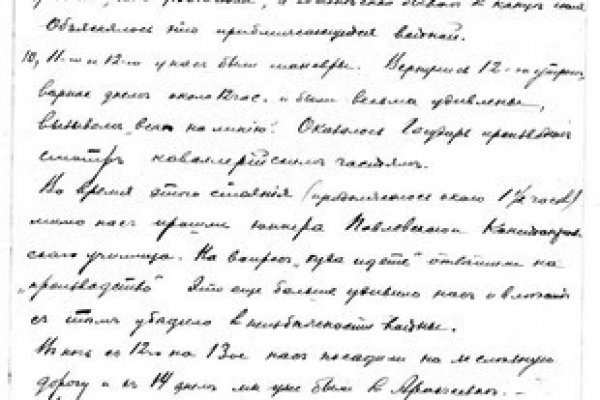 Объяснялось это приближающейся войной.
10, 11-го и 12-го у нас были маневры. Вернулись 12-го утром,
вернее днем около 12 час. и были весьма удивлены,
вызовом „всех на линию". Оказалось Государь производит
смотр кавалерийским частям.
Во время этого стояния (продолжалось около 1½ часов)
мимо нас прошли юнкера Павловского Константинов-
ского училища. На вопрос „куда идете" ответили на
„производство" Это еще больше удивило нас и вместе
с тем убедило в неизбежности войны.
В ночь с 12-го на 13-ое нас посадили на железную
дорогу и в 14 днем мы уже были в